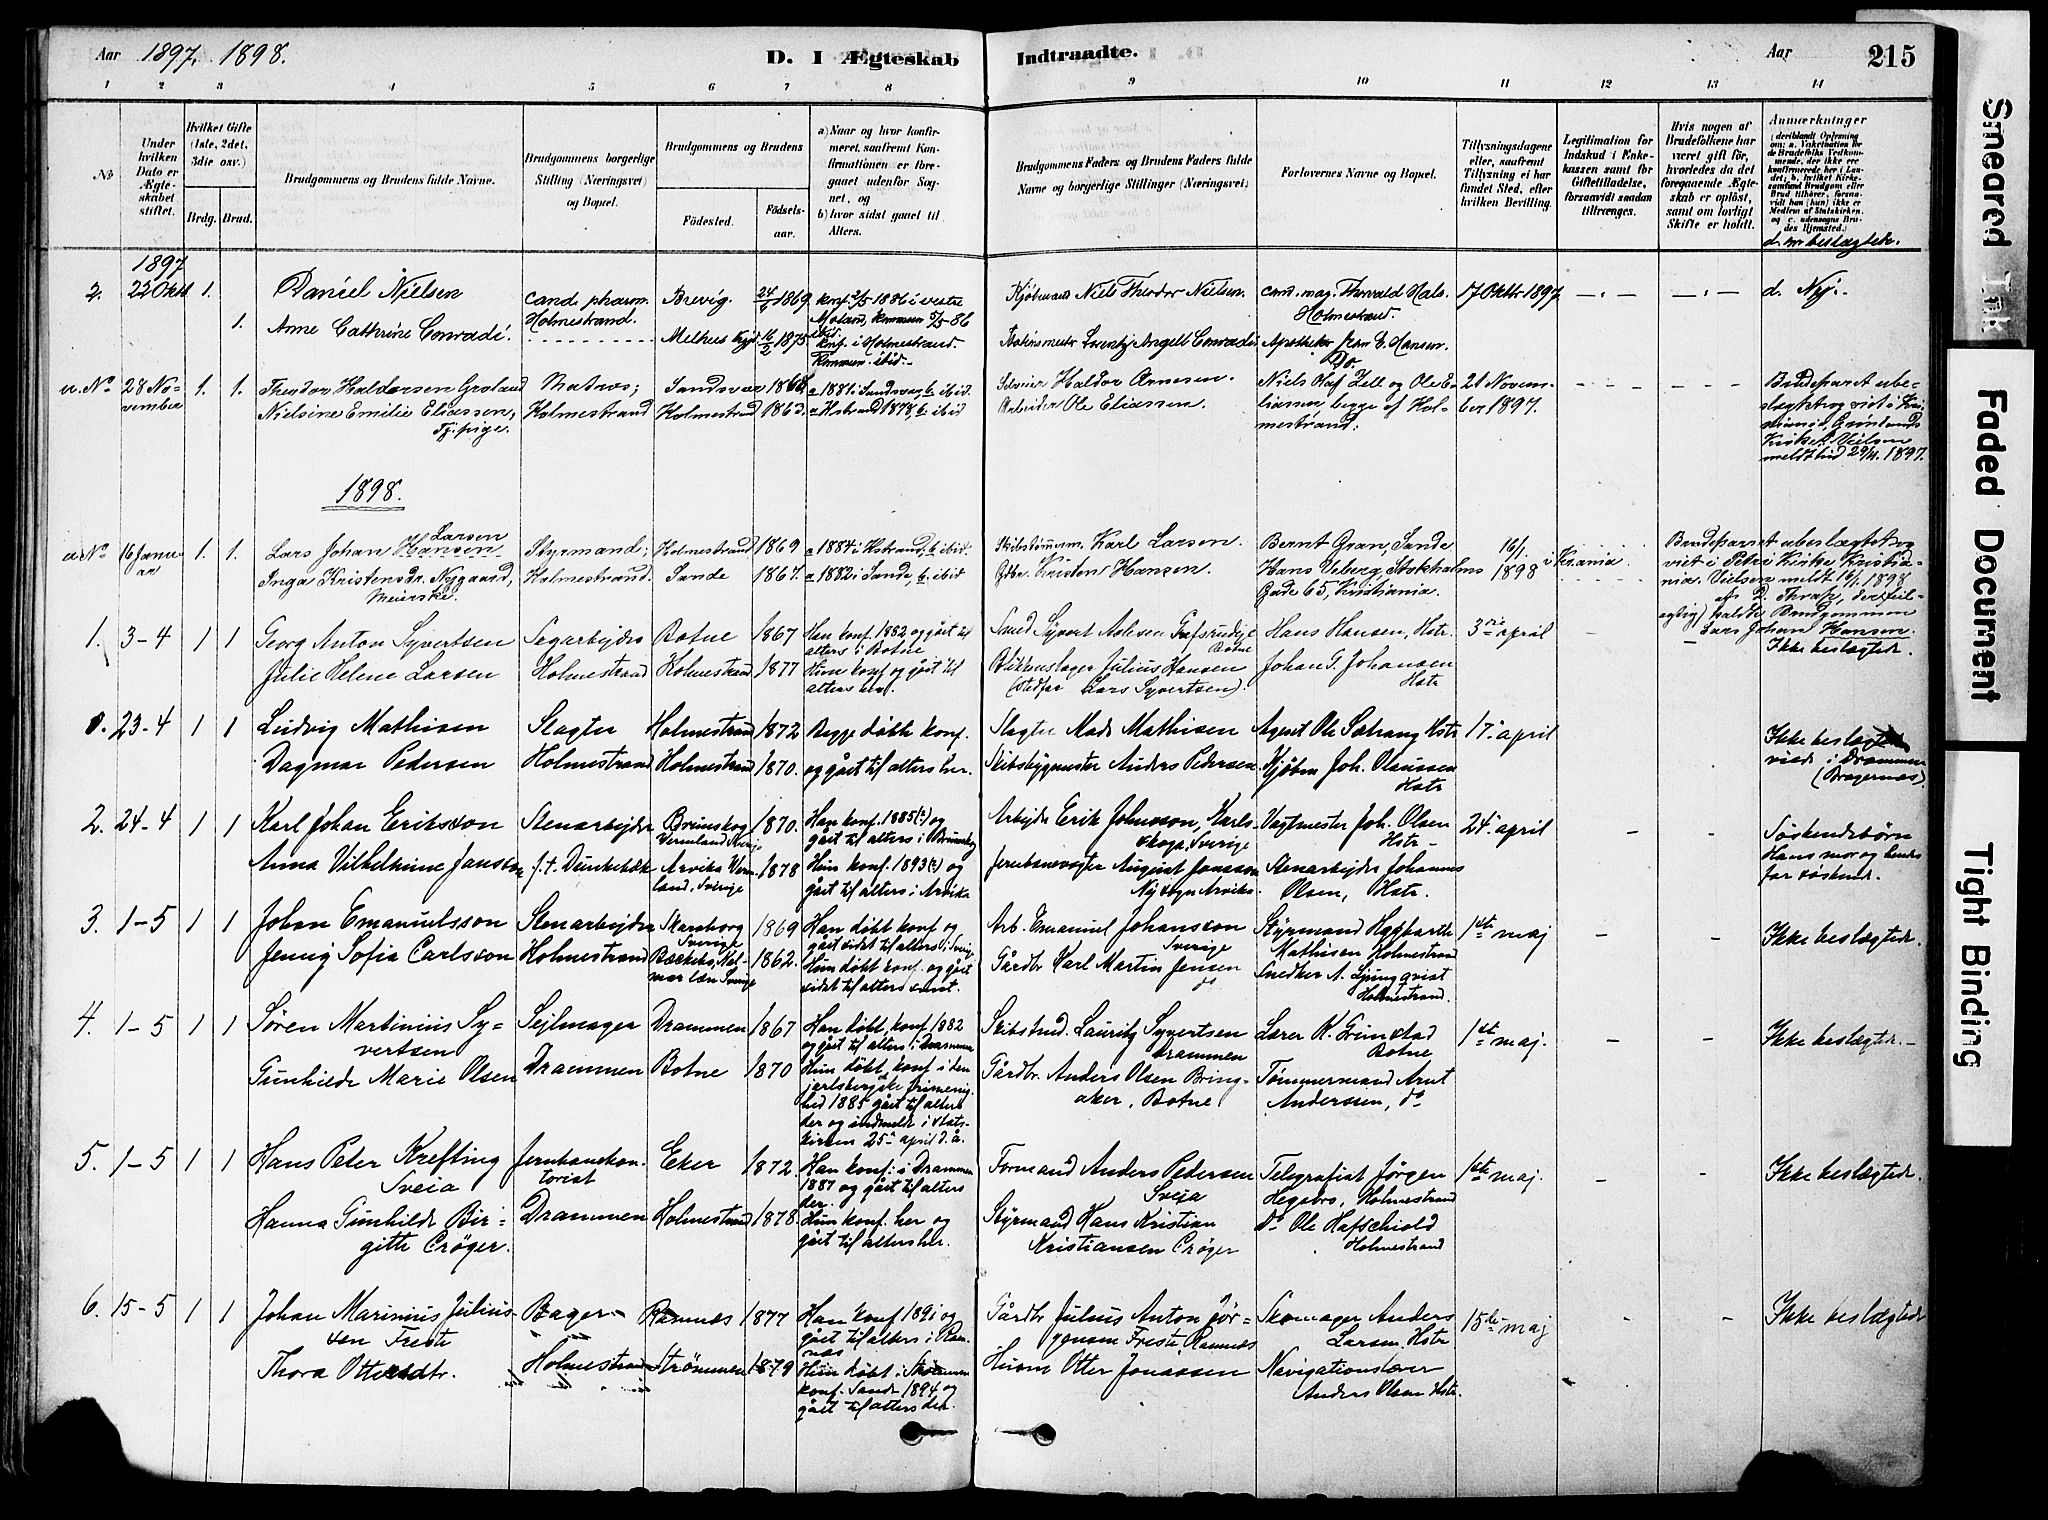 Aar 1897, 1898.
D. I Ægteskab
Indtraadte.
Aar
215
1 2 3 4 5 6 7 8
9 10 11 12 13 14
No
Under hvilken Dato er Ægteskabet stiftet.
Hvilket Gifte (1ste, 2det, 3die osv.)
Brdg. Brud.
Brudgommens og Brudens fulde Navne.
Brudgommens borgerlige Stilling (Næringsvei) og Bopæl.
Brudgommens og Brudens
Fødested.
Fødselsaar.
a) Naar og hvor konfirmeret, saafremt Konfirmationen er foregaaet udenfor Sognet, og
b) hvor sidst gaaet til Alters.
Brudgommens Faders og Brudens Faders fulde Navne og borgerlige Stillinger (Næringsvei)
Forlovernes Navne og Bopæl.
Tillysningsdagene eller, saafremt Tillysning ei har fundet Sted, efter hvilken Bevilling.
Legitimation for Indskud i Enkekassen samt for Giftetilladelse, forsaavidt saadan tiltrænges.
Hvis nogen af Brudefolkene har været gift før, hvorledes da det foregaaende Ægteskab er opløst, samt om lovligt Skifte er holdt.
Anmærkninger
d. om beslægtede.
1897
2. 22 Oktb 1. Daniel Nielsen cand. pharm. Brevig. 24/4 1869
Holmestrand.
1. Anne Cathrine Conradi. Melhus 16/2 1875
konf. i Holmestrand.
Kjøbmand Niels Theodor Nielsen. cand. mag. Thorvald Hals. Holmestrand. 17 Oktbr 1897 d. Nej.
Lorentz Angell Conradi Apotheker C. Hansen. Do.
u. No 28 November 1. 1. Theodor Haldorsen Matros; Sandsvær a 1881 i Sandsvær, b. ibid
Nielsine Emilie Eliassen, Holmestrand Holmestrand 1863. a Hstrand 1878, b. ibid
Tj.pige.
Haldor Arnesen. Niels Olaf Zell og Ole Eliassen, begge af Holmestrand. 21 November 1897.
Arbeider Ole Eliassen.
Brudeparret ubeslægtet og viet i Kristiania, Grønlands Kirke. Vielsen meldt hid 29/11. 1897.
1898.
u. No 16 Januar 1. 1. Lars Johan Hansen Larsen Styrmand; Holmestrand 1869 a 1884 i Hstrand, b. ibid.
Inga Kristensdr. Nygaard, Holmestrand. Sande 1867. a. 1882 i Sande, b. ibid
Meierske.
Skibstømmerm. Karl Larsen. Bernt Gran, Sande 16/1 1898 i Krania.
Gbr. Kristen Hansen. Hans Veberg, Stokholms Gade 65, Kristiania.
Brudeparret ubeslægtet og viet i Petri Kirke Kristiania. Vielsen meldt 16/1. 1898
Lars Johan Hansen.
1. 3-4 1 1 Georg Anton Syvertsen Sagarbejder Botne 1867 Han konf. 1882 og gået til alters i Botne
Julie Helene Larsen Holmestrand Holmestrand 1877 Hun konf og gået til alters her.
Smed Syvert Hans Hansen, Hstr. 3die april
Blikkenslager Julius Hansen Johan G. Johansen Hstr
(Stedfar Lars Syvertsen).
Ikke beslægtede.
23-4 1 1 Ludvig Mathisen Slagter Holmestrand 1872 Begge døbte konf.
Dagmar Pedersen Holmestrand Holmestrand 1870. og gået til alters her.
Slagter Mads Mathisen Agent Ole Sætrang Hstr 17. april
Skibsbygmester Anders Pedersen Kjøbm Joh. Olaussen Hstr
Ikke beslægtede viede i Drammen (Bragernæs).
2. 24-4 1 1 Karl Johan Eriksson Stenarbejder Brunskog Vermland Sverige 1870. Han konf. 1885(?) og gået til alters i Brunskog
Anna Vilhelmine Jansson f.t. Dunkebæk Arvika Vermland, Sverige 1878 Hun konf. 1893(?) og gået til alters i Arvika
Arbejder Erik Johnsson, Karlskoga, Sverige Vagtmester Joh. Olsen Hstr 24. april
Jernbanevogter August Jonsson Ny sogn Arvika. Stenarbejder Johannes Olsen, Hstr.
Søskendebørn Hans mor og hendes far søskende.
3. 1-5 1 1 Johan Emanuelsson Stenarbejder Skaraborg Sverige 1869 Han døbt konf og gået sidst til alters i Sverige
Jennig Sofia Carlsson Holmestrand Kalmar læn Sverige 1862. Hun døbt konf. og gået sidst til alters samt.
Arb. Emanuel Johansson Sverige Styrmand Hagbarth Mathisen Holmestrand 1ste maj
Gårdbr Karl Martin Jensen do Snedker A. Ljungqvist Holmestrand.
Ikke beslægtede.
4. 1-5 1 1 Søren Martinius Syvertsen Sejlmager Drammen 1867 Han døbt, konf 1882 og gået til alters i Drammen
Gunhilde Marie Olsen Drammen Botne 1870 Hun døbt, konf i den jarlsbergske frimenighed 1885 gået til alters der og indmeldt i statskirken 25de april d. å.
Lauritz Syvertsen Drammen Lærer K. Grimstad Botne 1ste maj.
Gårdbr. Anders Olsen Bringaker, Botne Tømmermand Arnt Anderssen, do
Ikke beslægtede.
5. 1-5 1 1 Hans Peter Krefting Sveia Jernbanekontorist Eker 1872. Han konf: i Drammen 1887 og gået til alters der.
Hanna Gunhilde Birgitte Crøger. Drammen Holmestrand 1878. Hun konf. her og gået til alters her.
Formand Anders Pedersen Sveia Telegrafist Jørgen Hegsbro, Holmestrand 1ste maj.
Styrmand Hans Kristian Kristiansen Crøger do Ole Hafschiold Holmestrand
Ikke beslægtede.
6. 15-5 1 1 Johan Marinius Juliussen Freste Bager Ramnæs 1877 Han konf 1891 og gået til alters i Ramnæs
Thora Ottersdtr. Holmestrand Strømmen 1879 Hun døbt i Strømmen konf. Sande 1894 og gået til alters der.
Gårdbr Julius Anton Jørgensen Freste, Ramnæs Skomager Anders Larsen, Hstr 15de maj
Husm Otter Jonassen Navigationslærer Anders Olsen Hstr.
Ikke beslægtede
Smeared Ink
Faded Document
Tight Binding